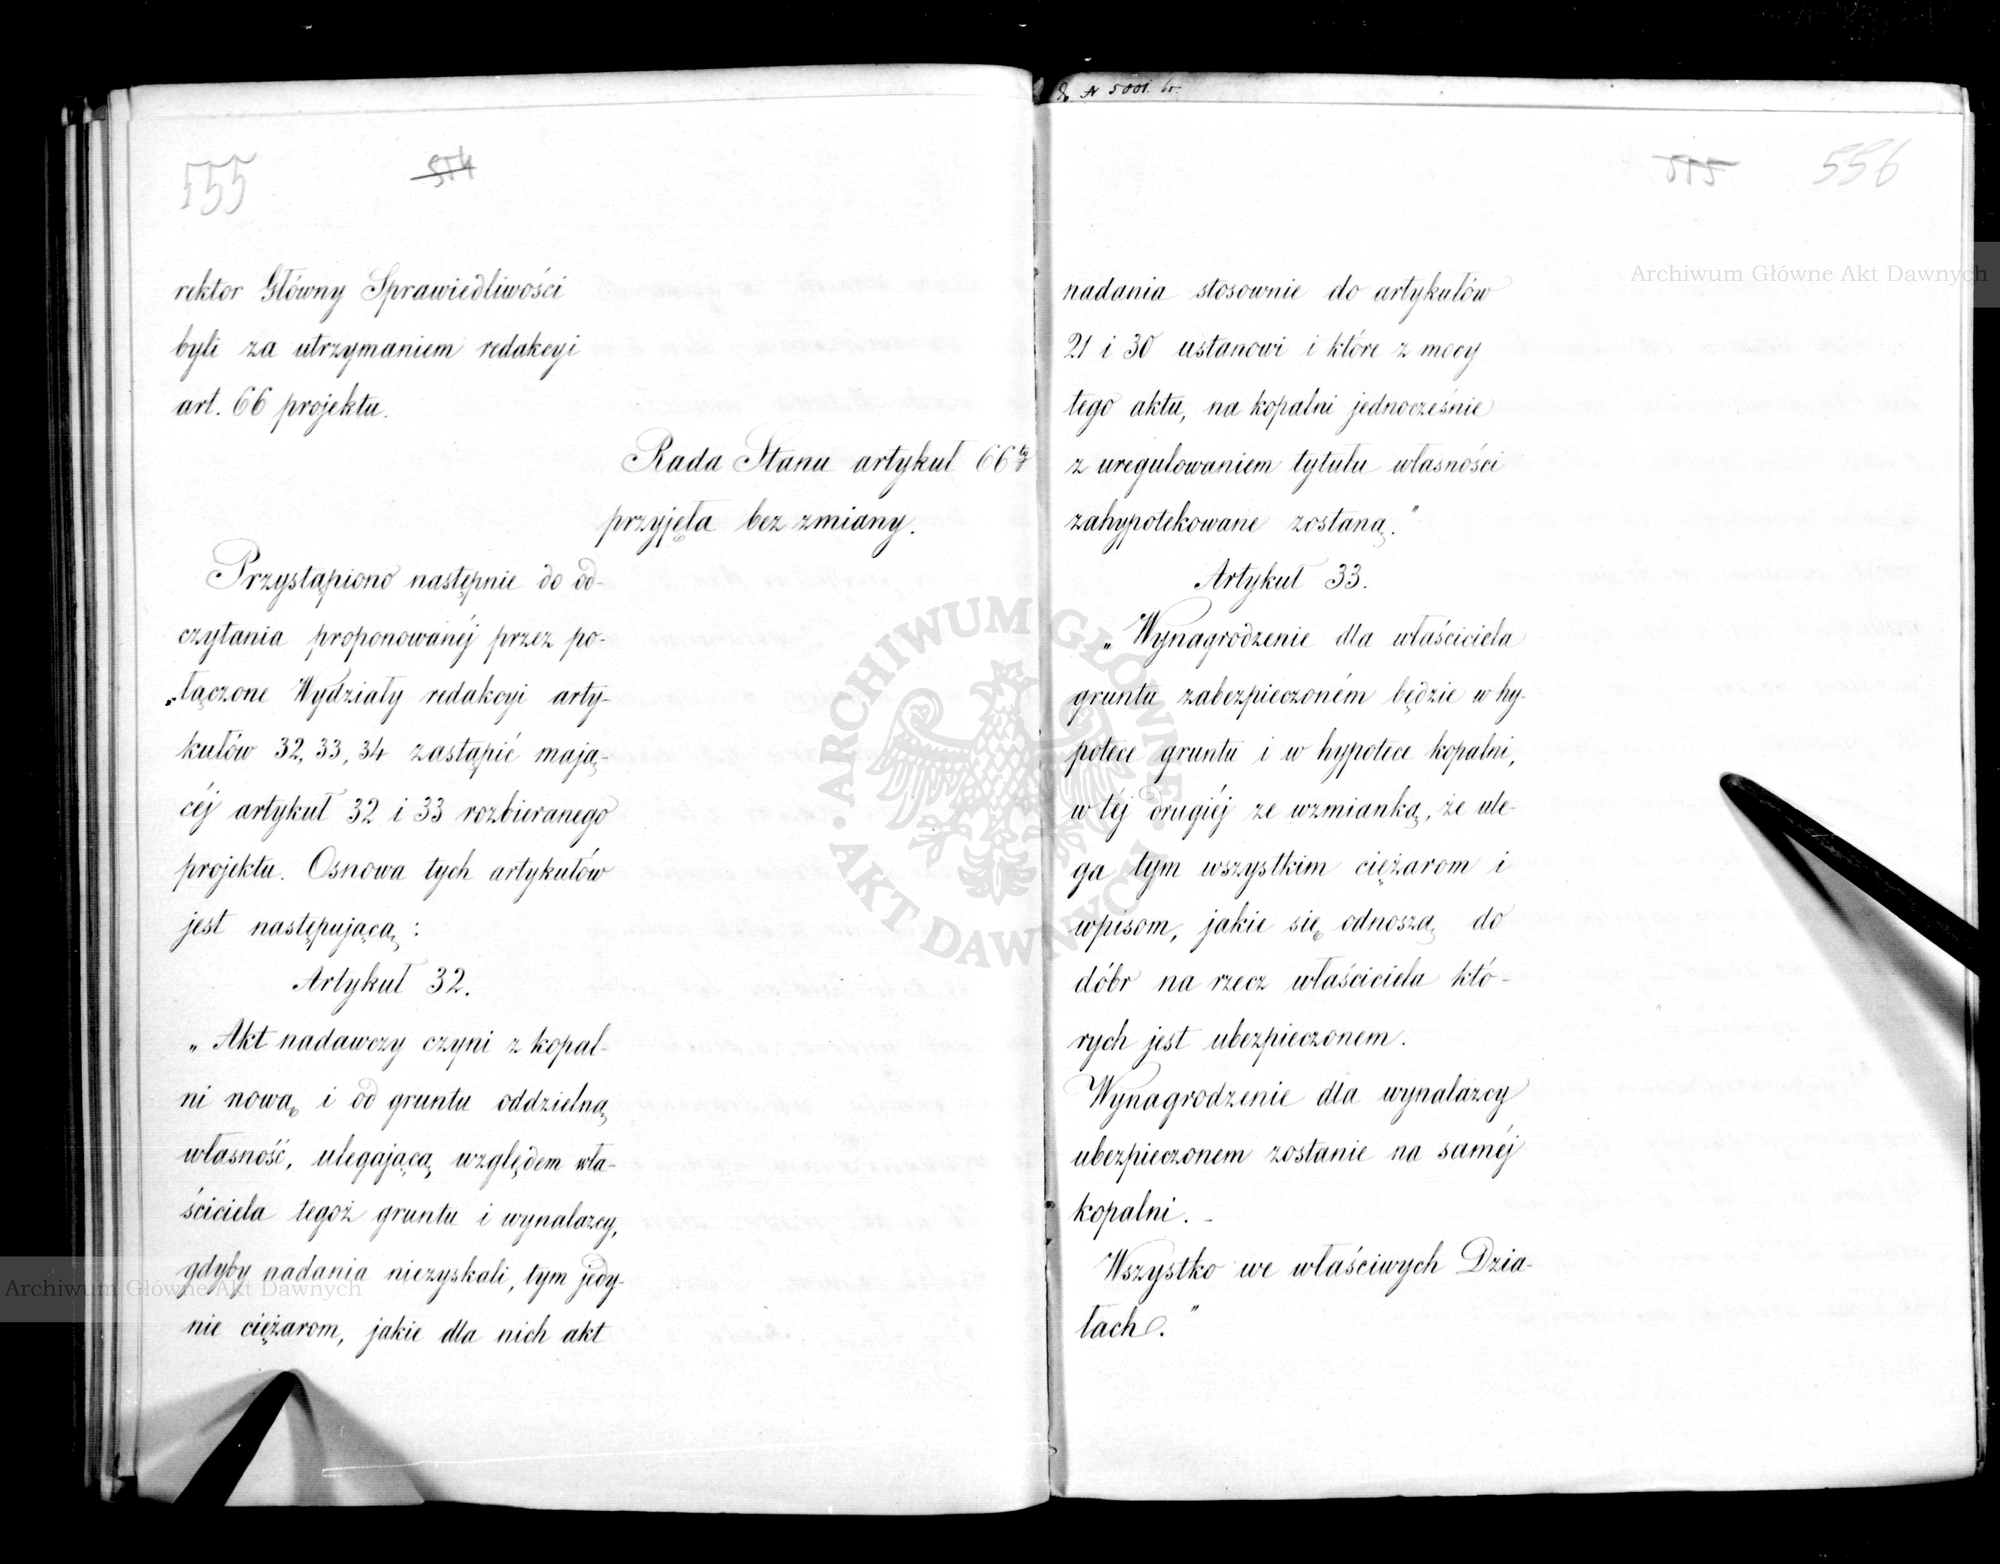 555
554
rektor Główny Sprawiedliwości
byli za utrzymaniem redakcyi
art. 66 projektu.
Rada Stanu artykuł 66ty
przyjęła bez zmiany.
Przystąpiono następnie do od-
czytania proponowanéj przez po-
łączone Wydziały redakcyi arty-
kułów 32, 33, 34 zastąpić mają-
céj artykuł 32 i 33 rozbieranego
projektu. Osnowa tych artykułów
jest następującą:
Artykuł 32.
„Akt nadawczy czyni z kopal-
ni nową i od gruntu oddzielną
własność, ulegającą względem wła-
ściciela tegoż gruntu i wynalazcy,
gdyby nadania niezyskali, tym jedy-
nie ciężarom, jakie dla nich akt
№ 5001.
555
556
nadania stosownie do artykułów
21 i 30 ustanowi i które z mocy
tego aktu, na kopalni jednocześnie
z uregulowaniem tytułu własności
zahypotekowane zostaną."
Artykuł 33.
„Wynagrodzenie dla właściciela
gruntu zabezpieczoném będzie w hy-
potece gruntu i w hypotece kopalni,
w téj drugiéj ze wzmianką, że ule-
ga tym wszystkim ciężarom i
wpisom, jakie się odnoszą do
dóbr na rzecz właściciela któ-
rych jest ubezpieczonem.
Wynagrodzenie dla wynalazcy
ubezpieczonem zostanie na saméj
kopalni. –
Wszystko we właściwych Dzia-
łach."
ARCHIWUM GŁÓWNE
AKT DAWNYCH
Archiwum Główne Akt Dawnych
Archiwum Główne Akt Dawnych